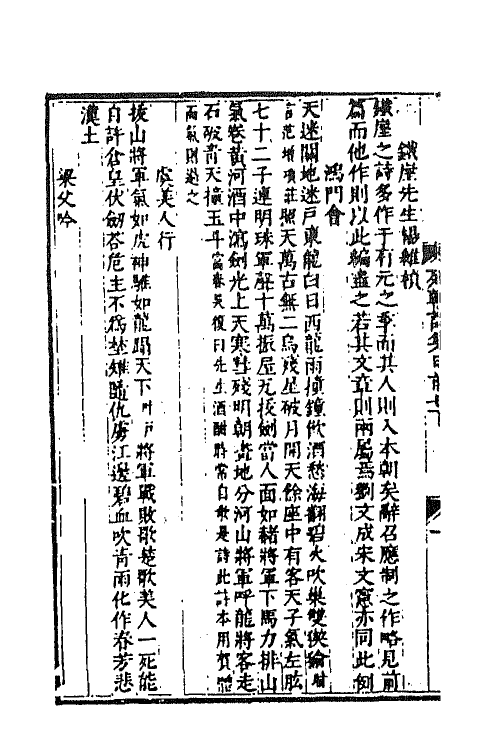 列朝詩集甲前七下
鐵崖先生楊維楨
鐵崖之詩多作于有元之季而其人則入本朝矣辭召應制之作略見前
篇而他作則以此編盡之若其文章則兩屬焉劉文成宋文憲亦同此例
鴻門會
天迷關地迷戶東龍白日西龍雨撞鐘飲酒愁海翻碧火吹巢雙猰貐
言范增項莊照天萬古無二烏殘星破月開天餘座中有客天子氣左股
七十二子連明珠軍聲十萬振屋瓦拔劍當人面如赭將軍下馬力排山
氣卷黃河酒中瀉劍光上天寒彗殘明朝畫地分河山將軍呼龍將客走
石破青天撞玉斗富春吳復曰先生酒酣時常自歌是詩此詩本用賀體
而氣則過之
虞美人行
拔山將軍氣如虎神騅如龍蹋天下將軍戰敗歌楚歌美人一死能
自許倉皇伏劍答危主不爲埜雉隨仇虜江邊碧血吹青雨化作春芳悲
漢土
梁父吟